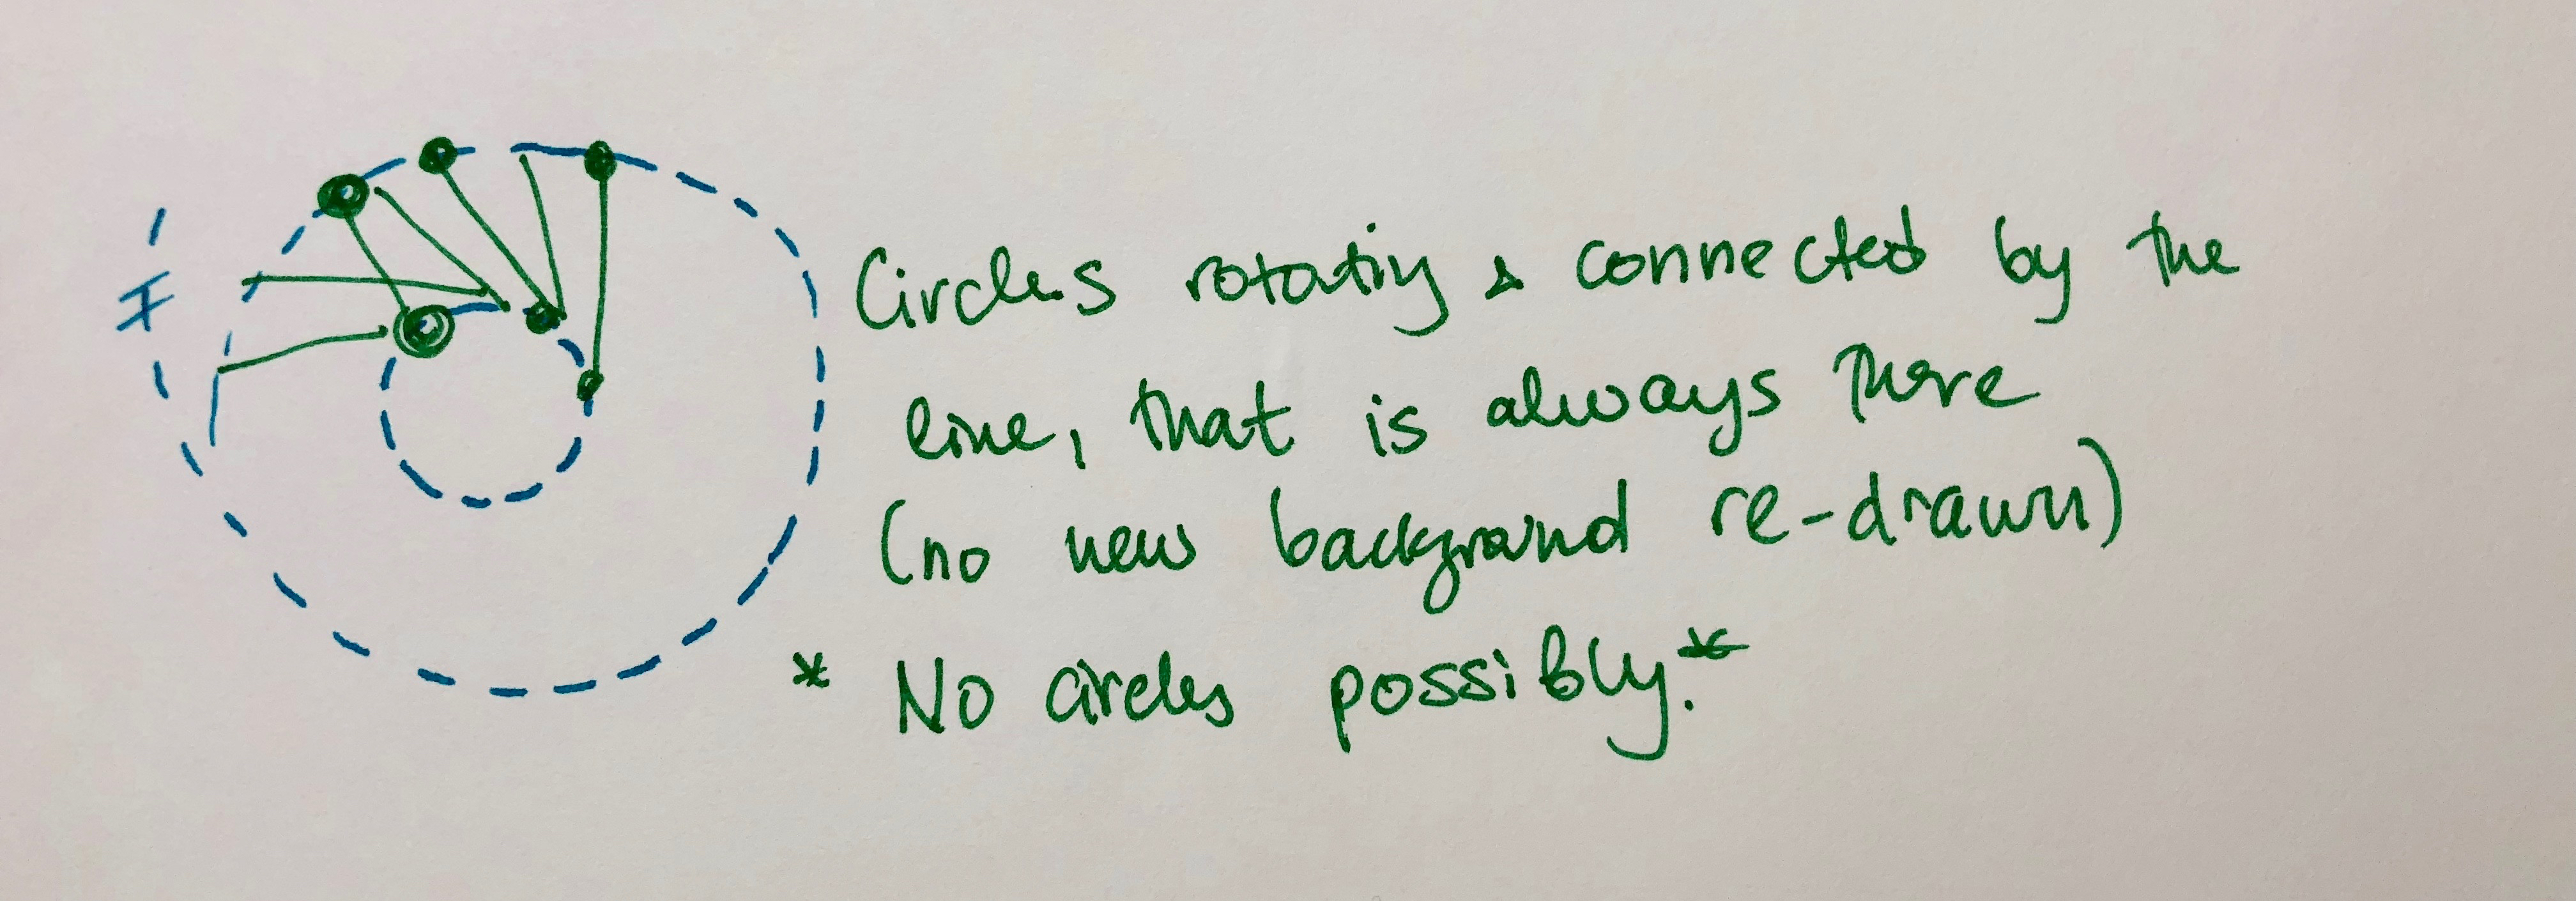 Circles rotating & connected by the
line, that is always there
(no new background re-drawn)
* No circles possibly.*